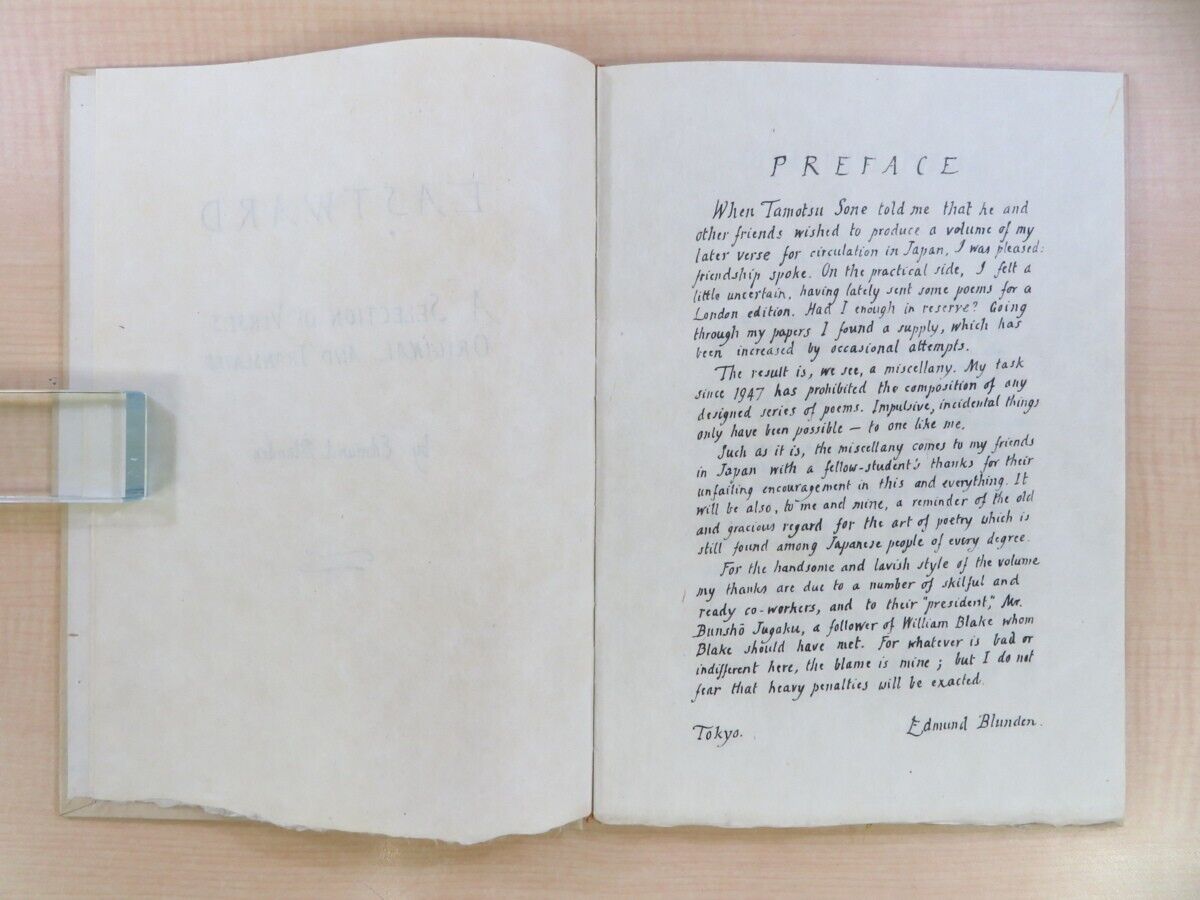 EASTWARD
A SELECTION OF VERSES
ORIGINAL AND TRANSLATED
by Edmund Blunden
PREFACE
When Tamotsu Sone told me that he and
other friends wished to produce a volume of my
later verse for circulation in Japan, I was pleased:
friendship spoke. On the practical side, I felt a
little uncertain, having lately sent some poems for a
London edition. Had I enough in reserve? Going
through my papers I found a supply, which has
been increased by occasional attempts.
The result is, we see, a miscellany. My task
since 1947 has prohibited the composition of any
designed series of poems. Impulsive, incidental things
only have been possible — to one like me.
Such as it is, the miscellany comes to my friends
in Japan with a fellow-student's thanks for their
unfailing encouragement in this and everything. It
will be also, to me and mine, a reminder of the old
and gracious regard for the art of poetry which is
still found among Japanese people of every degree.
For the handsome and lavish style of the volume
my thanks are due to a number of skilful and
ready co-workers, and to their "president," Mr.
Bunshō Jugaku, a follower of William Blake whom
Blake should have met. For whatever is bad or
indifferent here, the blame is mine; but I do not
fear that heavy penalties will be exacted.
Tokyo. Edmund Blunden.